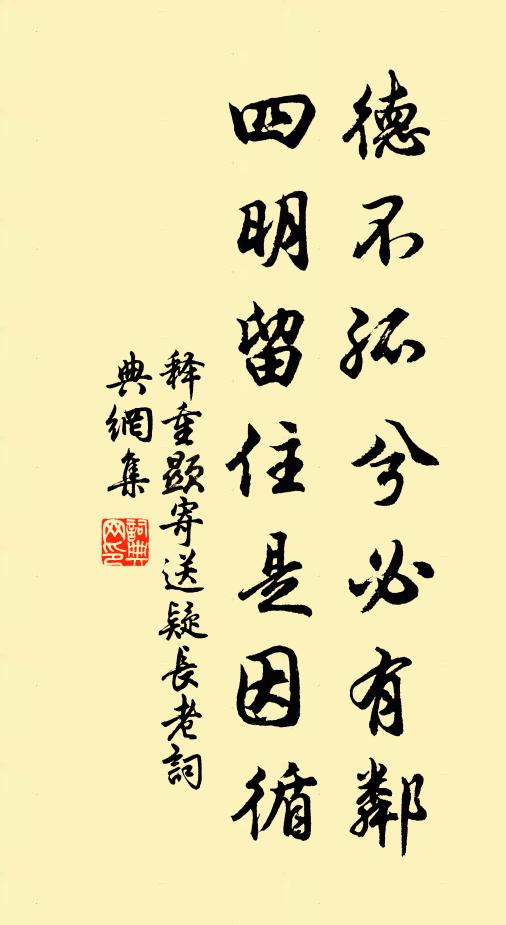 德不孤兮必有鄰
四明留住是因循
释重顯寄送疑長老詞
典網集
詞典
网印